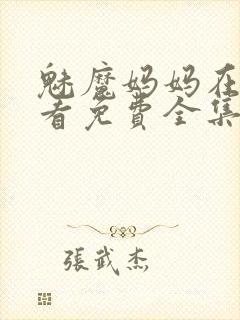 魅魔妈妈在
看免費全集
張武杰